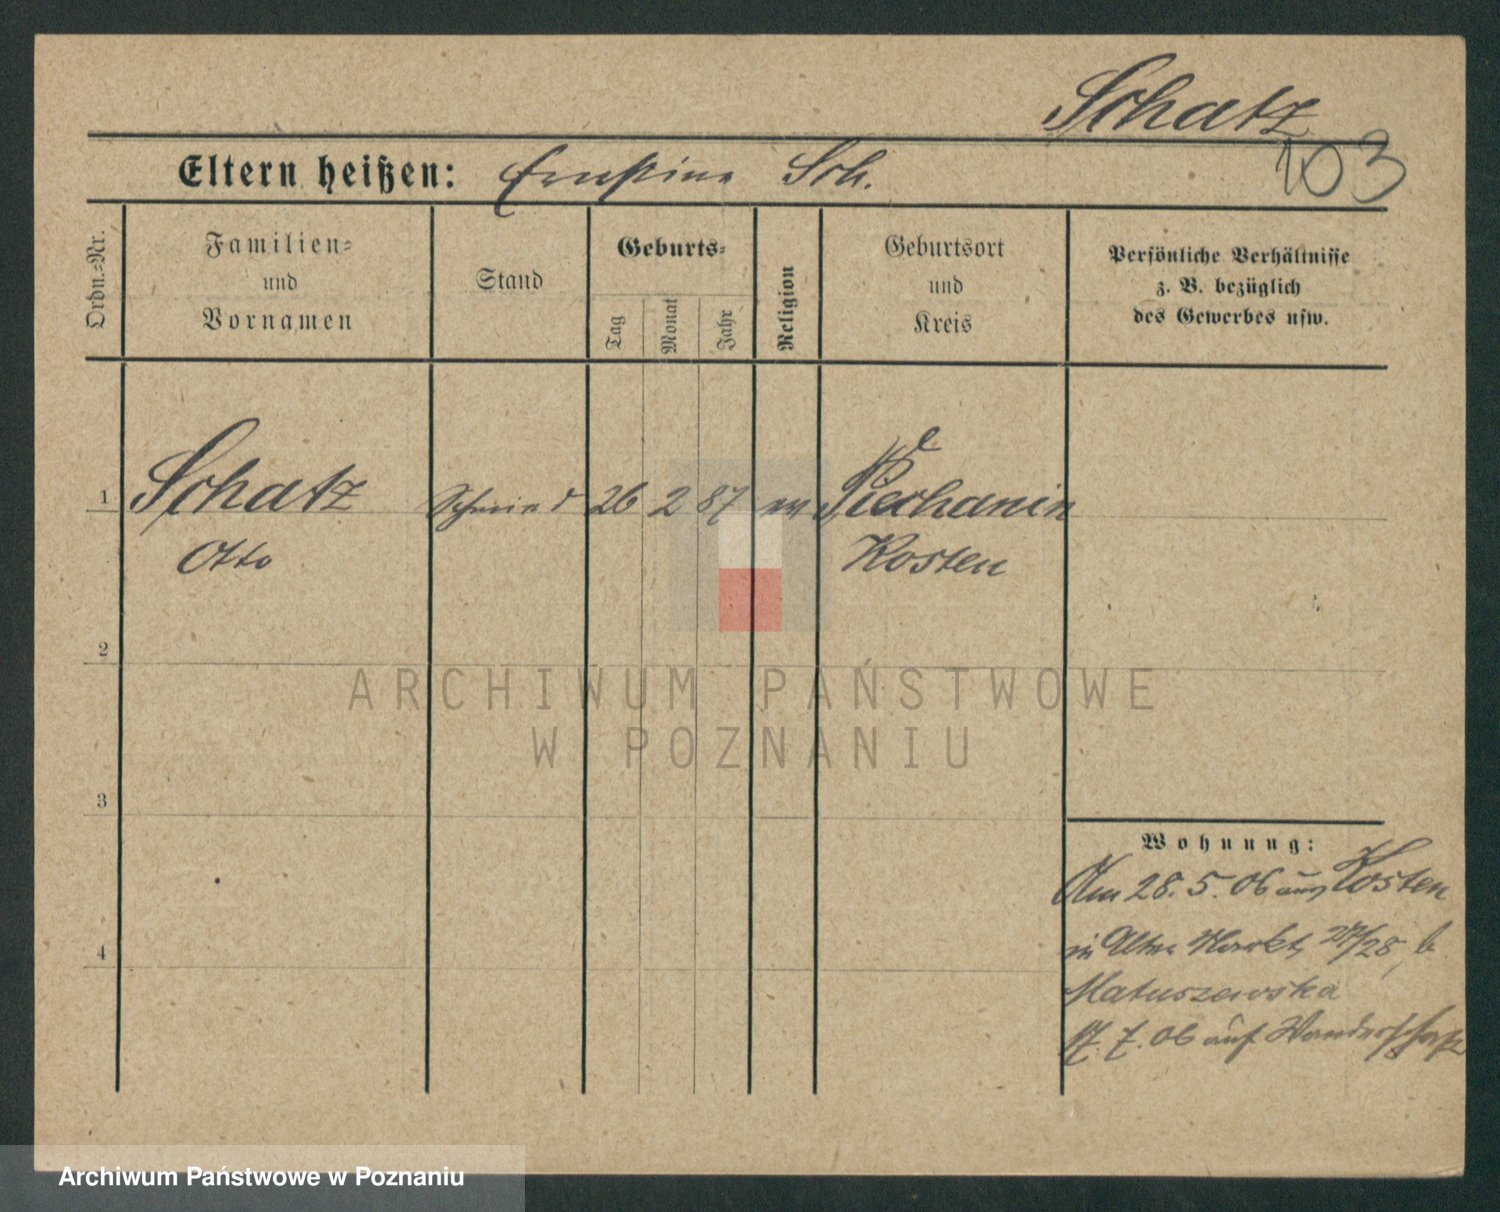 Schatz
103
Eltern heißen: Ernstine Sch.
Ordn.=Nr.
Familien=
und
Vornamen
Stand
Geburts=
Tag
Monat
Jahr
Religion
Geburtsort
und
Kreis
Persönliche Verhältnisse
z. B. bezüglich
des Gewerbes usw.
1 Schatz Schmied 26 2 87 ev Piechanin
Otto Kosten
2
ARCHIWUM PAŃSTWOWE
W POZNANIU
3
Wohnung:
Am 28.5.06 aus Kosten
in Alter Markt 27/28, b
4
Matuszewska
17.7.06 auf Wanderschaft
Archiwum Państwowe w Poznaniu